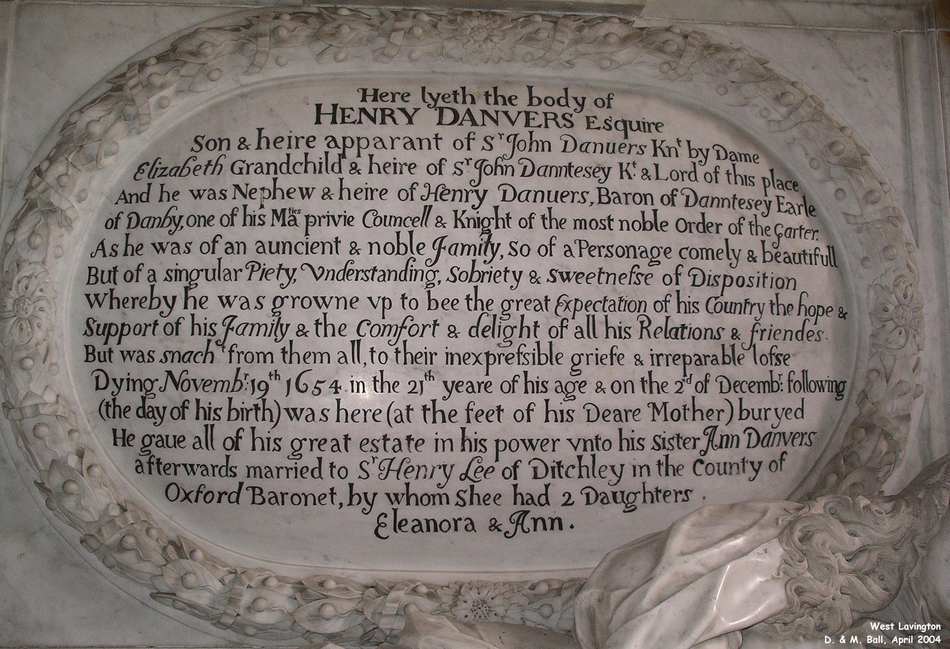 Here lyeth the body of
HENRY DANVERS Esquire
Son & heire apparant of Sr John Danuers Knt by Dame
Elizabeth Grandchild & heire of Sr John Danntesey Kt & Lord of this place
And he was Nephew & heire of Henry Danuers, Baron of Danntesey Earle
of Danby, one of his Maties privie Councell & Knight of the most noble Order of the Garter.
As he was of an auncient & noble Family, so of a Personage comely & beautifull
But of a singular Piety, Vnderstanding, Sobriety & sweetnesse of Disposition
Whereby he was growne vp to bee the great Expectation of his Country the hope &
Support of his Family & the Comfort & delight of all his Relations & friendes.
But was snacht from them all, to their inexpressible griefe & irreparable losse
Dying Novembr. 19th 1654 in the 21th yeare of his age & on the 2d of Decembr: following
(the day of his birth) was here (at the feet of his Deare Mother) buryed
He gaue all of his great estate in his power vnto his sister Ann Danvers
afterwards married to Sr Henry Lee of Ditchley in the County of
Oxford Baronet, by whom Shee had 2 Daughters.
Eleanora & Ann.
West Lavington
D. & M. Ball, April 2004